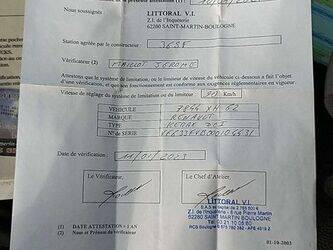 Nous soussignés
LITTORAL V.I.
Z.I. de l'Inquétrie
62280 SAINT-MARTIN-BOULOGNE
Station agréée par le constructeur :
Vérificateur (2) : MAILLOT JEROME
Attestons que le système de limitation ou le limiteur de vitesse du véhicule ci-dessous a fait l'objet
d'une vérification, conformément aux exigences réglementaires en vigueur
Vitesse de réglage du système de limitation ou du limiteur : 90 Km/h
VÉHICULE
62
MARQUE RENAULT
TYPE KERAX
N° de SÉRIE
Date de vérification : 11/01/2023
Le Vérificateur,
Le Chef d'Atelier,
LITTORAL V.I.
S.A.S au capital de
Z.I. de l'Inquétrie - 8 rue Pierre Martin
62280 SAINT-MARTIN-BOULOGNE
Tél 03 21 10 05 80
RCS Boulogne
(1) DATE ATTESTATION + 1 AN
(2) Nom et Prénom du vérificateur
01-10-2003